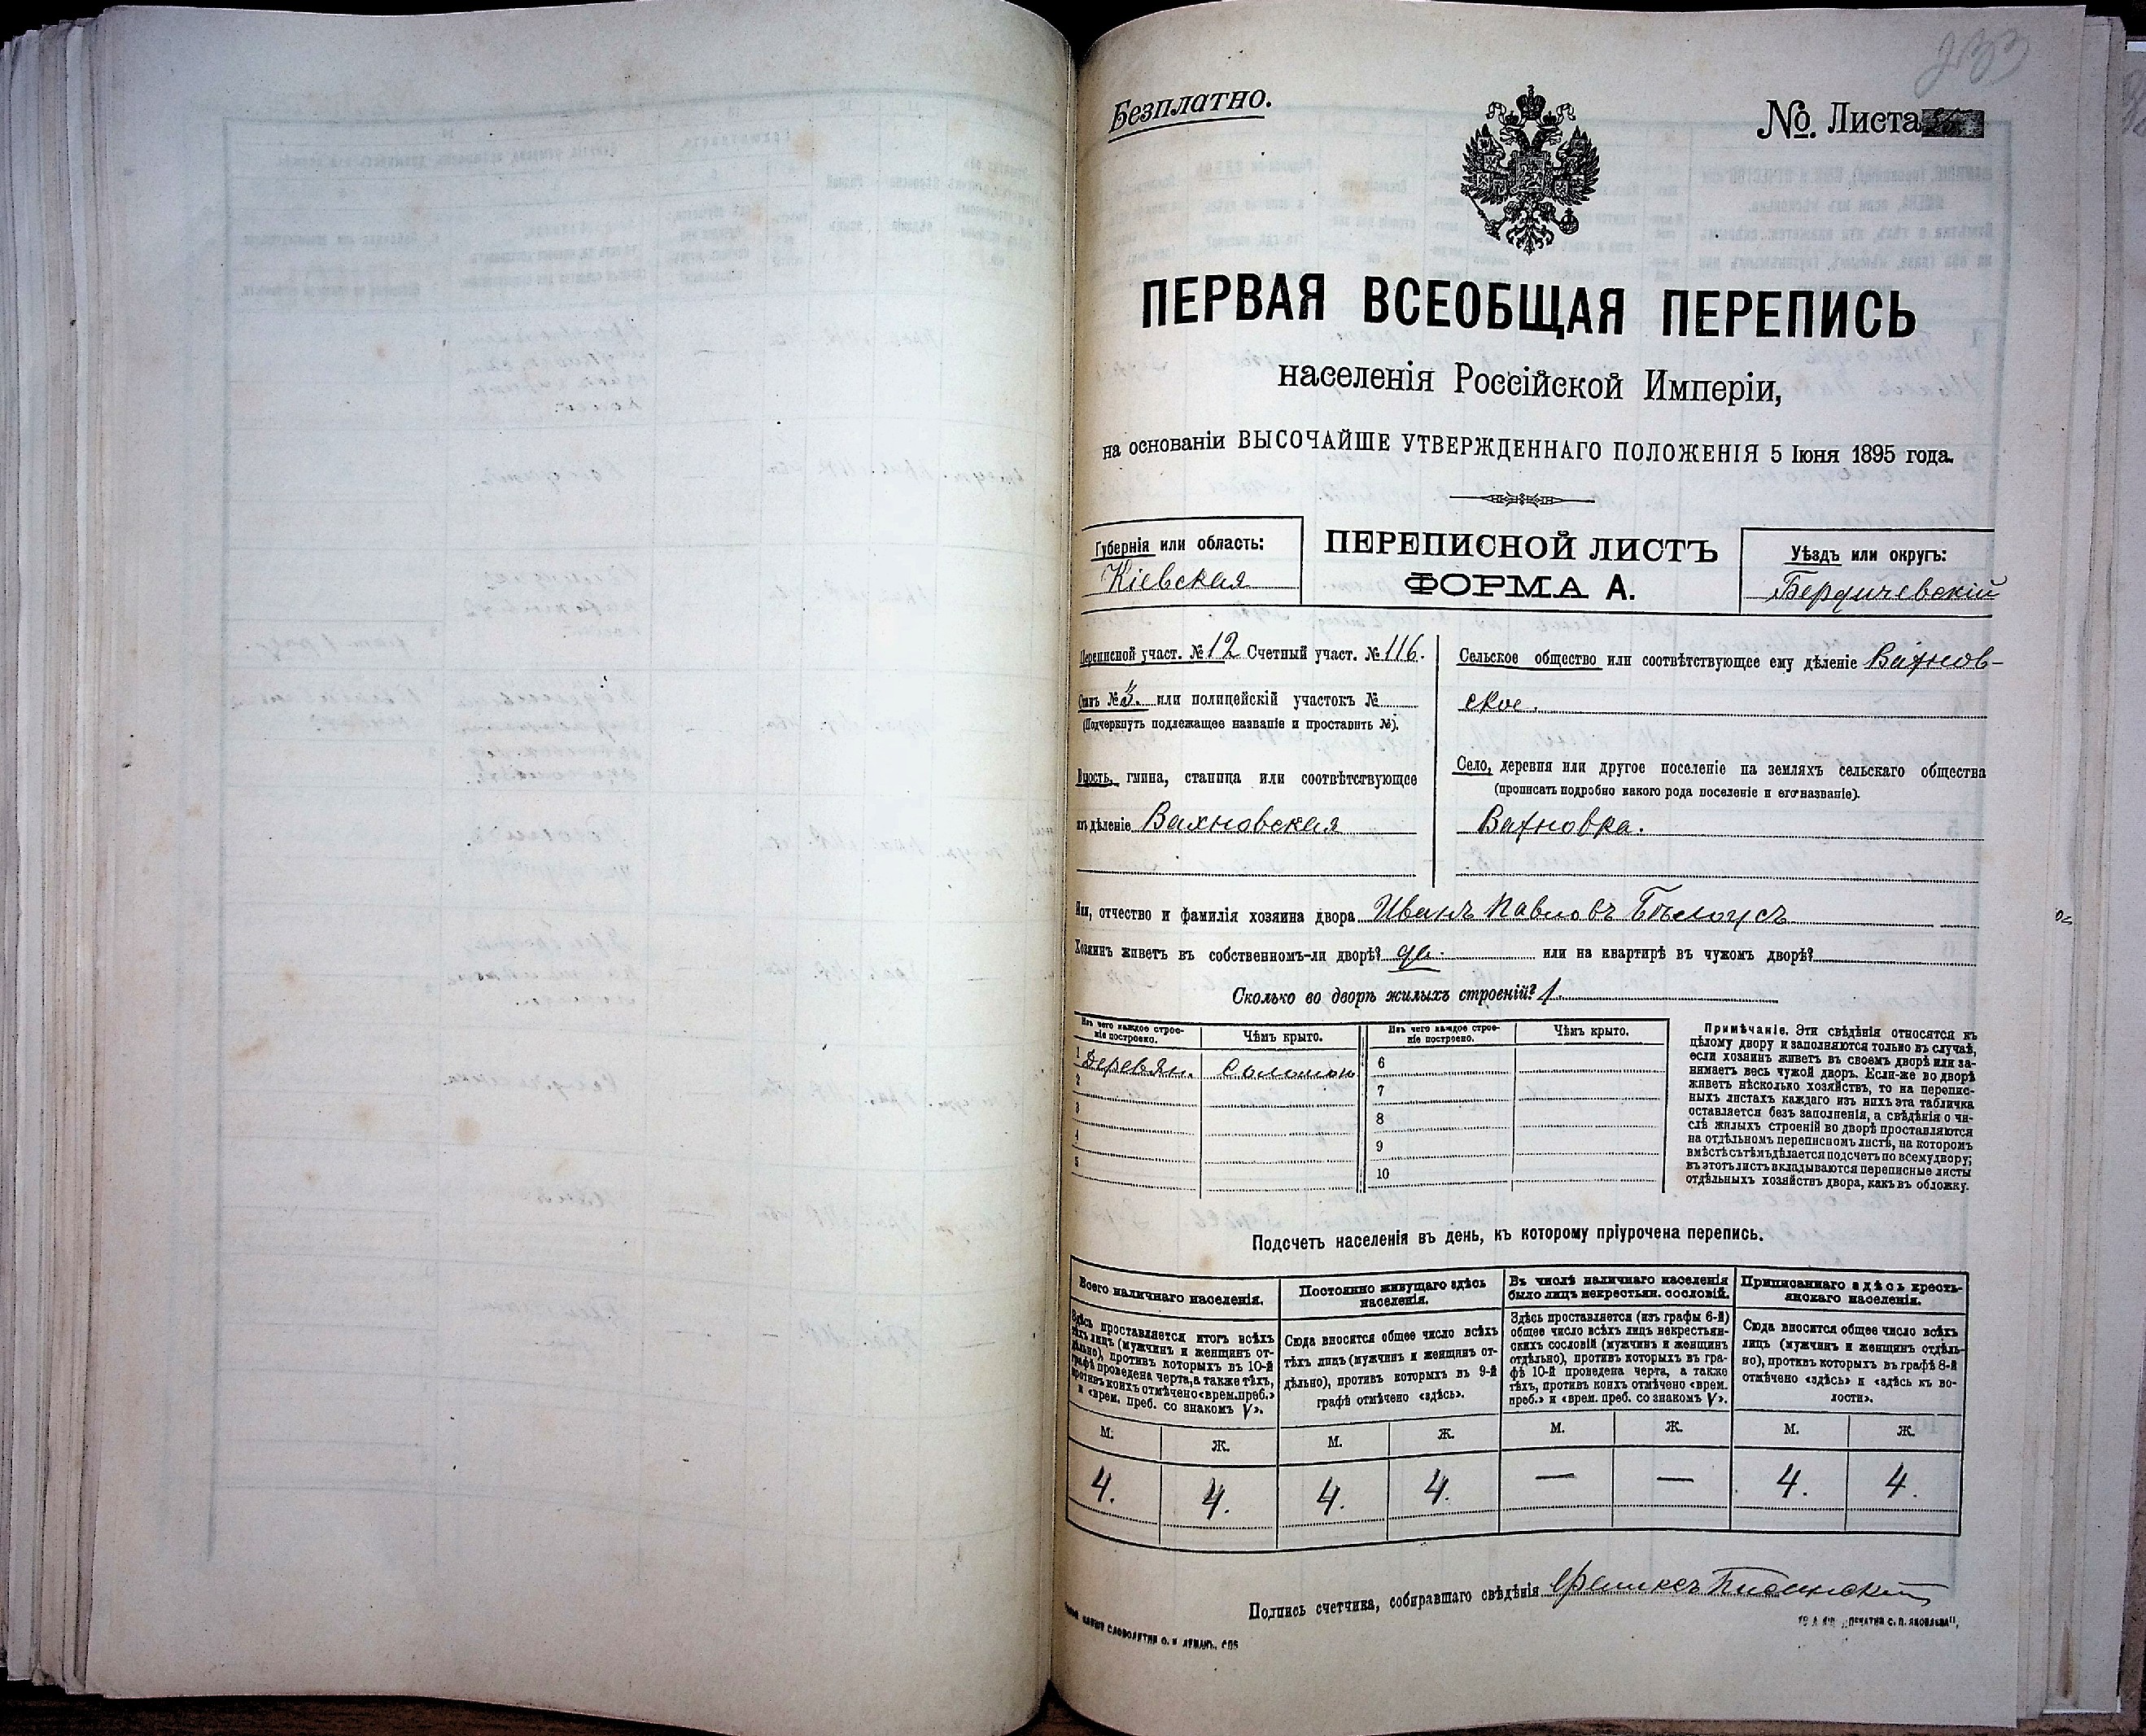 233
Безплатно.
№. Листа
ПЕРВАЯ ВСЕОБЩАЯ ПЕРЕПИСЬ
населенія Россійской Имперіи,
на основаніи ВЫСОЧАЙШЕ УТВЕРЖДЕННАГО ПОЛОЖЕНІЯ 5 Іюня 1895 года.
Губернія или область:
Кіевская
ПЕРЕПИСНОЙ ЛИСТЪ
ФОРМА А.
Уѣздъ или округъ:
Бердичевскій
Переписной участ. № 12 Счетный участ. № 116.
Станъ № 3. или полицейскій участокъ №
(Подчеркнуть подлежащее названіе и проставить №).
Волость, гмина, станица или соотвѣтствующее
имъ дѣленіе Вахновская
Сельское общество или соотвѣтствующее ему дѣленіе Вахнов-
ское.
Село, деревня или другое поселеніе на земляхъ сельскаго общества
(прописать подробно какого рода поселеніе и его названіе).
Вахновка.
Имя, отчество и фамилія хозяина двора Иванъ Павловъ Бѣлоусъ
Хозяинъ живетъ въ собственномъ-ли дворѣ? да. или на квартирѣ въ чужомъ дворѣ?
Сколько во дворѣ жилыхъ строеній? 1.
Изъ чего каждое строе-
ніе построено.
Чѣмъ крыто.
Изъ чего каждое строе-
ніе построено.
Чѣмъ крыто.
1 Деревян. Соломою 6
2 7
3 8
4 9
5 10
Примѣчаніе. Эти свѣдѣнія относятся къ
цѣлому двору и заполняются только въ случаѣ,
если хозяинъ живетъ въ своемъ дворѣ или за-
нимаетъ весь чужой дворъ. Если-же во дворѣ
живетъ нѣсколько хозяйствъ, то на перепис-
ныхъ листахъ каждаго изъ нихъ эта табличка
оставляется безъ заполненія, а свѣдѣнія о чи-
слѣ жилыхъ строеній во дворѣ проставляются
на отдѣльномъ переписномъ листѣ, на которомъ
вмѣстѣ съ тѣмъ дѣлается подсчетъ по всему двору;
въ этотъ листъ вкладываются переписные листы
отдѣльныхъ хозяйствъ двора, какъ въ обложку.
Подсчетъ населенія въ день, къ которому пріурочена перепись.
Всего наличнаго населенія.
Здѣсь проставляется итогъ всѣхъ
тѣхъ лицъ (мужчинъ и женщинъ от-
дѣльно), противъ которыхъ въ 10-й
графѣ проведена черта, а также тѣхъ,
противъ коихъ отмѣчено «врем. преб.»
и «врем. преб. со знакомъ V».
Постоянно живущаго здѣсь
населенія.
Сюда вносится общее число всѣхъ
тѣхъ лицъ (мужчинъ и женщинъ от-
дѣльно), противъ которыхъ въ 9-й
графѣ отмѣчено «здѣсь».
Въ числѣ наличнаго населенія
было лицъ некрестьян. сословій.
Здѣсь проставляется (изъ графы 6-й)
общее число всѣхъ лицъ некрестьян-
скихъ сословій (мужчинъ и женщинъ
отдѣльно), противъ которыхъ въ гра-
фѣ 10-й проведена черта, а также
тѣхъ, противъ коихъ отмѣчено «врем.
преб.» и «врем. преб. со знакомъ V».
Приписаннаго здѣсь кресть-
янскаго населенія.
Сюда вносится общее число всѣхъ
лицъ (мужчинъ и женщинъ отдѣль-
но), противъ которыхъ въ графѣ 8-й
отмѣчено «здѣсь» и «здѣсь къ во-
лости».
М. Ж. М. Ж. М. Ж. М. Ж.
4. 4. 4. 4. — — 4. 4.
Подпись счетчика, собиравшаго свѣдѣнія Феликсъ